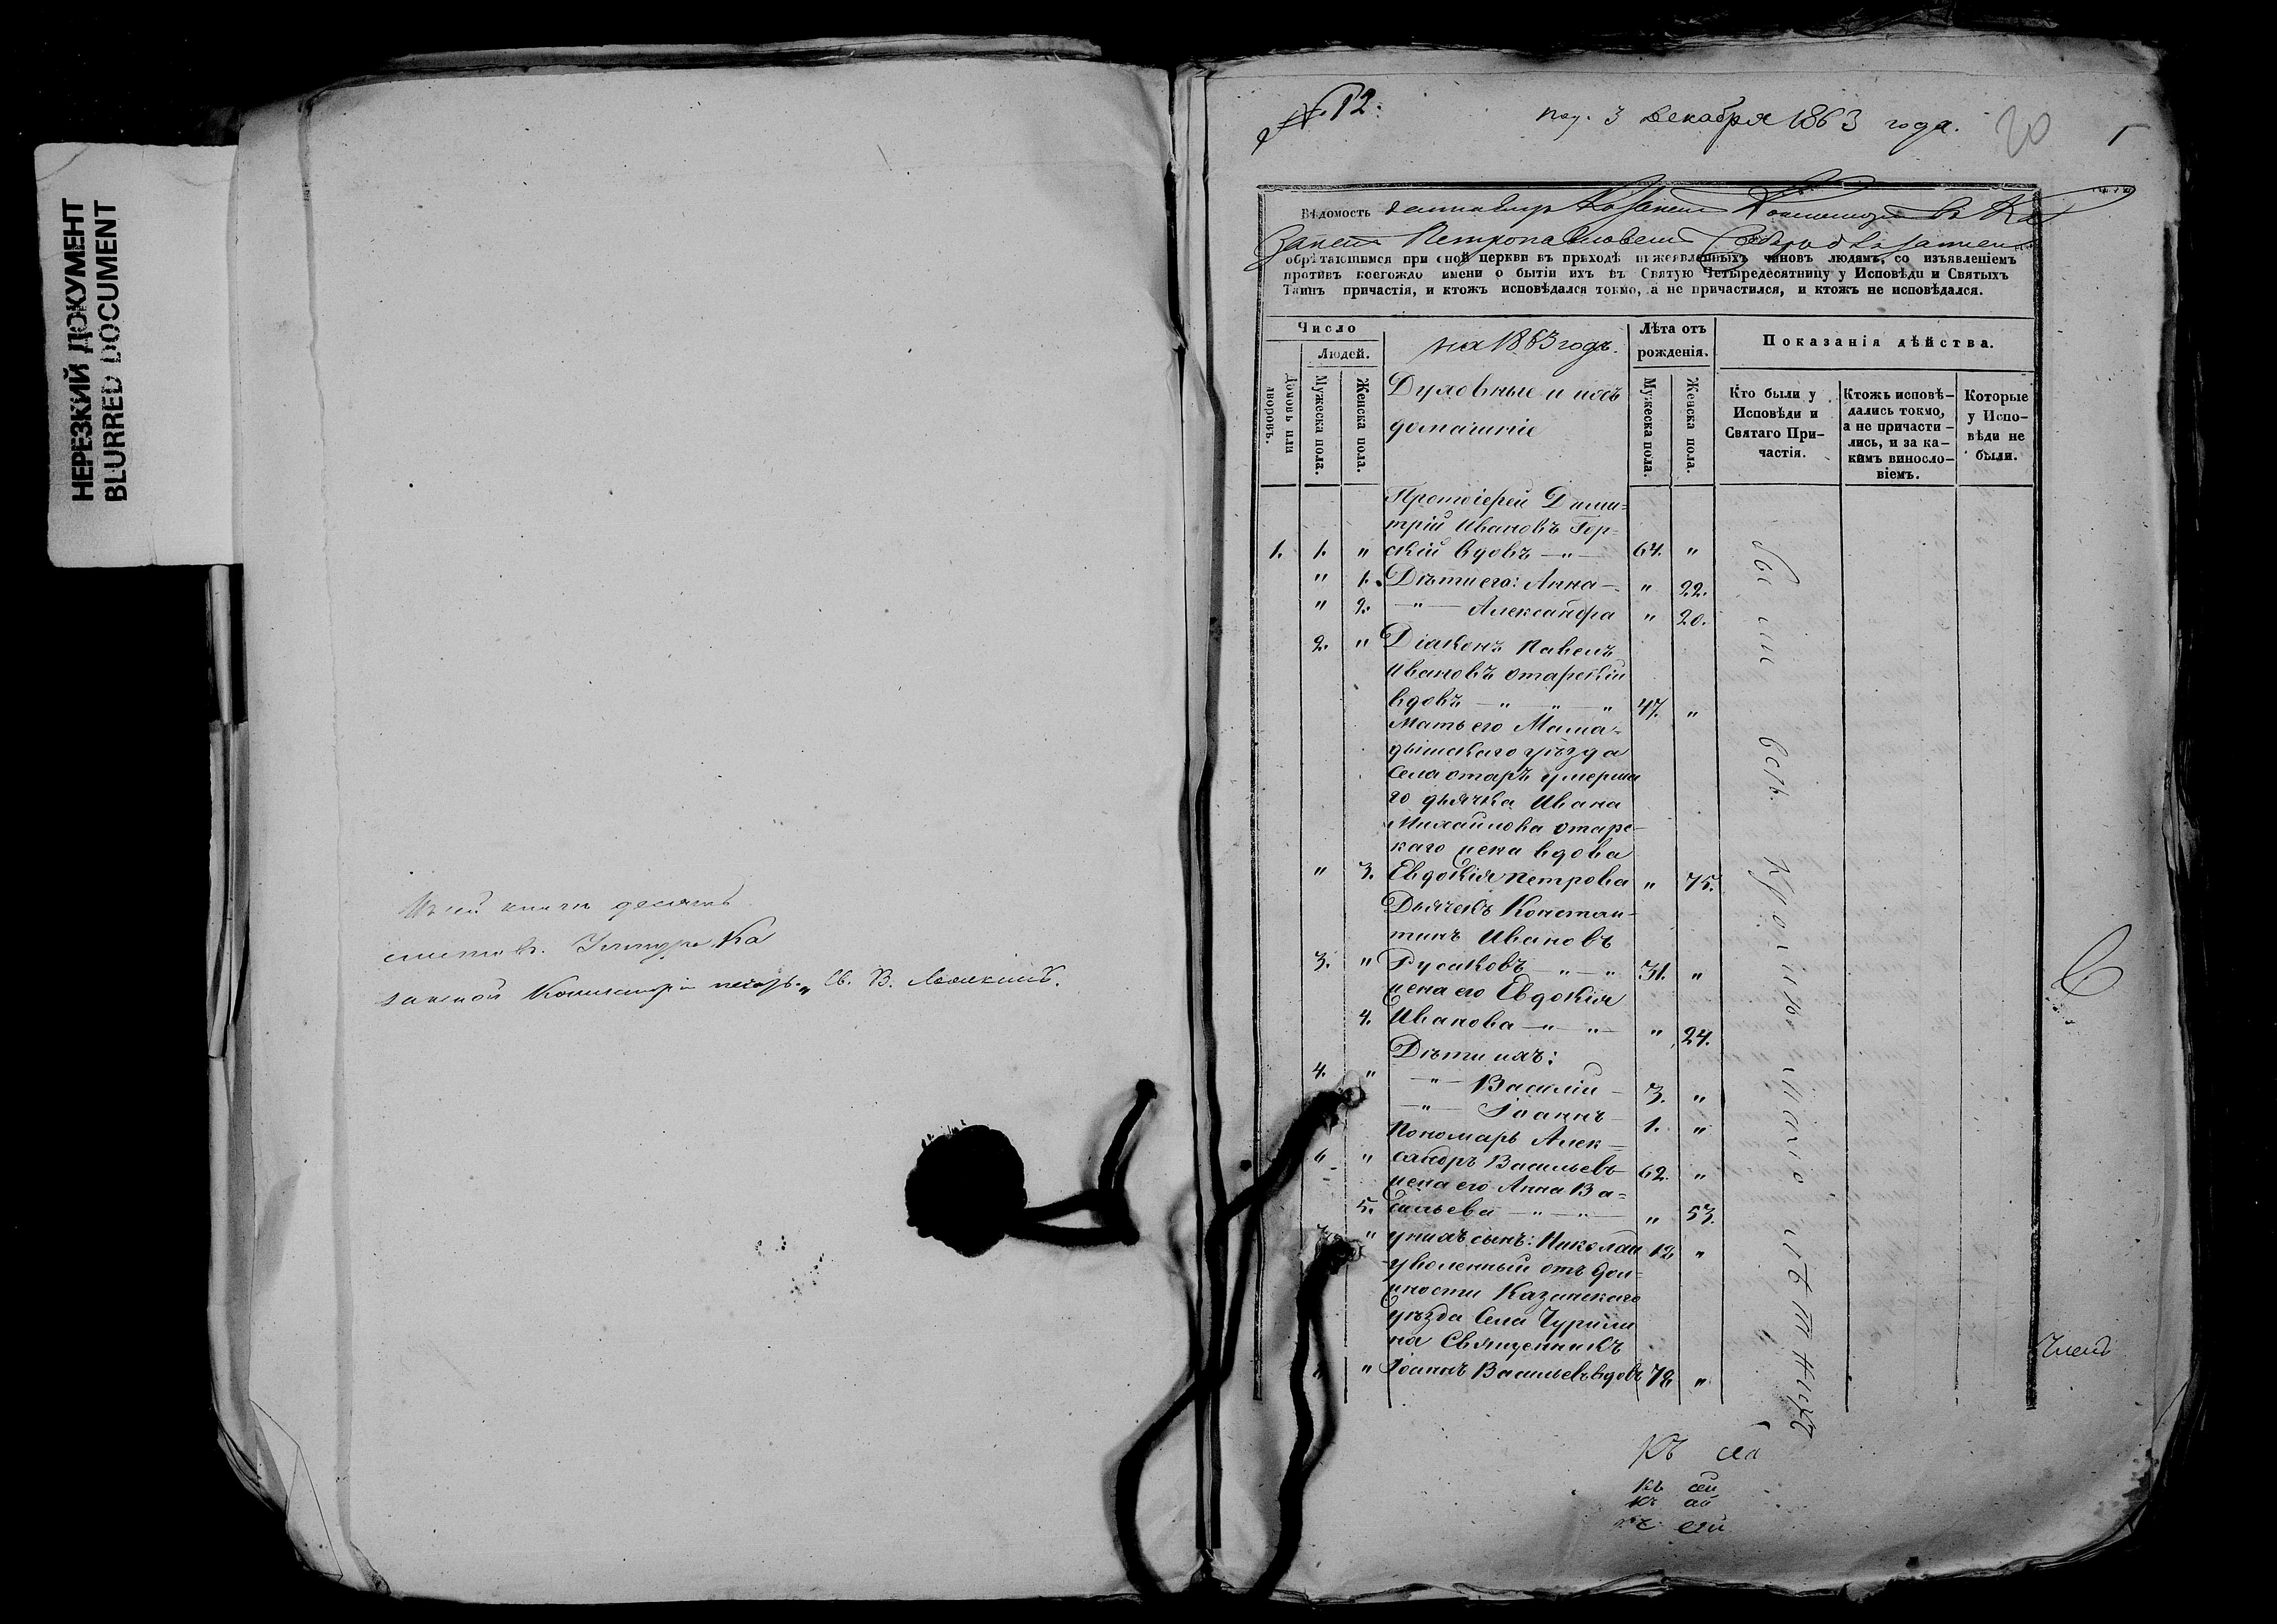 НЕРЕЗКИЙ ДОКУМЕНТ
BLURRED DOCUMENT
книги десять
листовъ.
занской Консисторіи
№ 12.
пол. 3 Декабря 1863 года.
20
1
Вѣдомость
Петропавловск
обрѣтающимся при сной церкви въ приходѣ нижеявленныхъ чиновъ людямъ, со изъявленіемъ
противъ коегождо имени о бытіи ихъ въ Святую Четыредесятницу у Исповѣди и Святыхъ
Таинъ причастія, и ктожъ исповѣдался токмо, а не причастился, и ктожъ не исповѣдался.
Число
Людей.
Домовъ или дворовъ.
Мужеска пола.
Женска пола.
на 1863 годъ.
Духовные и ихъ
домашніе
Лѣта отъ рожденія.
Мужеска пола.
Женска пола.
Показанія дѣйства.
Кто были у Исповѣди и Святаго Причастія.
Ктожъ исповѣдались токмо, а не причастились, и за какимъ винословіемъ.
Которые у Исповѣди не были.
Протоіерей Дими-
трій Ивановъ Гор-
1. 1. " скій вдовъ — " — 64. "
" 1. Дѣти его: Анна — " 22.
" 2. — " — Александра " 20.
2. " Діаконъ Павелъ
Ивановъ Отарскій
вдовъ — " — " — " 47. "
Мать его Мама-
дышскаго уѣзда
села Отаръ умерша
го дьячка Ивана
Михайлова Отарс-
каго жена вдова
" 3. Евдокія Петрова " 75.
Дьячекъ Констан-
тинъ Ивановъ
3. " Русановъ — " — " 31. "
жена его Евдокія
4. Иванова — " — " — " 24.
Дѣти ихъ:
4. " — " — Василій — 3. "
— " — Іоаннъ — 1. "
Пономарь Алек-
6 " сандръ Васильевъ 62. "
жена его Анна Ва-
5. сильева — " — " — " 53.
7. " у нихъ сынъ: Николай 12 "
уволенный отъ дол-
жности Казанскаго
уѣзда Села Чурили
на Священникъ
" Іоаннъ Васильевъ вдовъ 72 "
Были всѣ кромѣ малолѣтнихъ
Членъ